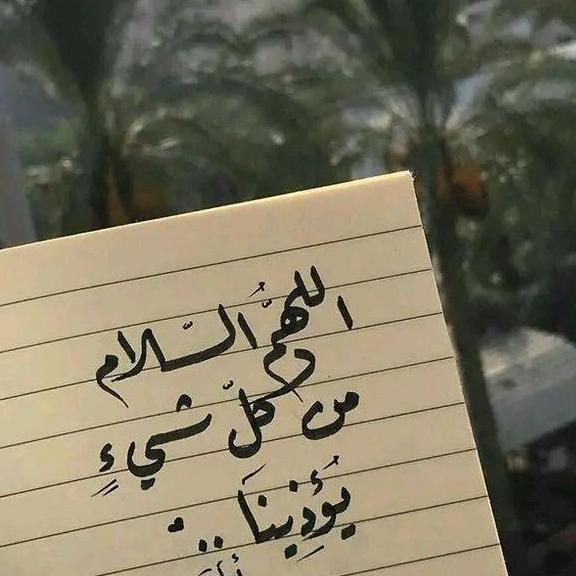 اللهمَّ السّلام
من كلّ شيءٍ
يُؤذِينَا ...